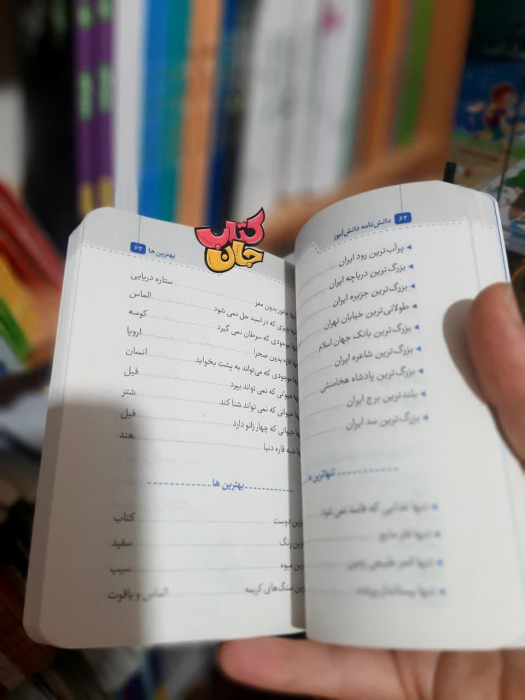 کتاب
جان
۶۲ دانش‌نامه دانش‌آموز
پرآب‌ترین رود ایران
بزرگ‌ترین دریاچه ایران
بزرگ‌ترین جزیره ایران
طولانی‌ترین خیابان تهران
بزرگ‌ترین بانک جهان اسلام
بزرگ‌ترین شاعره ایران
بزرگ‌ترین پادشاه هخامنشی
بلندترین برج ایران
بزرگ‌ترین سد ایران
تنهاترین
تنها غذایی که فاسد نمی‌شود
تنها فلز مایع
تنها قمر طبیعی زمین
تنها پستاندار پرنده
بهترین ها ۶۳
جانور بدون مغز ستاره دریایی
چیزی که در اسید حل نمی شود الماس
موجودی که سرطان نمی گیرد کوسه
قاره بدون صحرا اروپا
موجودی که می‌تواند به پشت بخوابد انسان
حیوانی که نمی تواند بپرد فیل
حیوانی که نمی تواند شنا کند شتر
حیوانی که چهار زانو دارد فیل
شبه قاره دنیا هند
بهترین ها
دوست کتاب
رنگ سفید
میوه سیب
سنگ‌های کریمه الماس و یاقوت